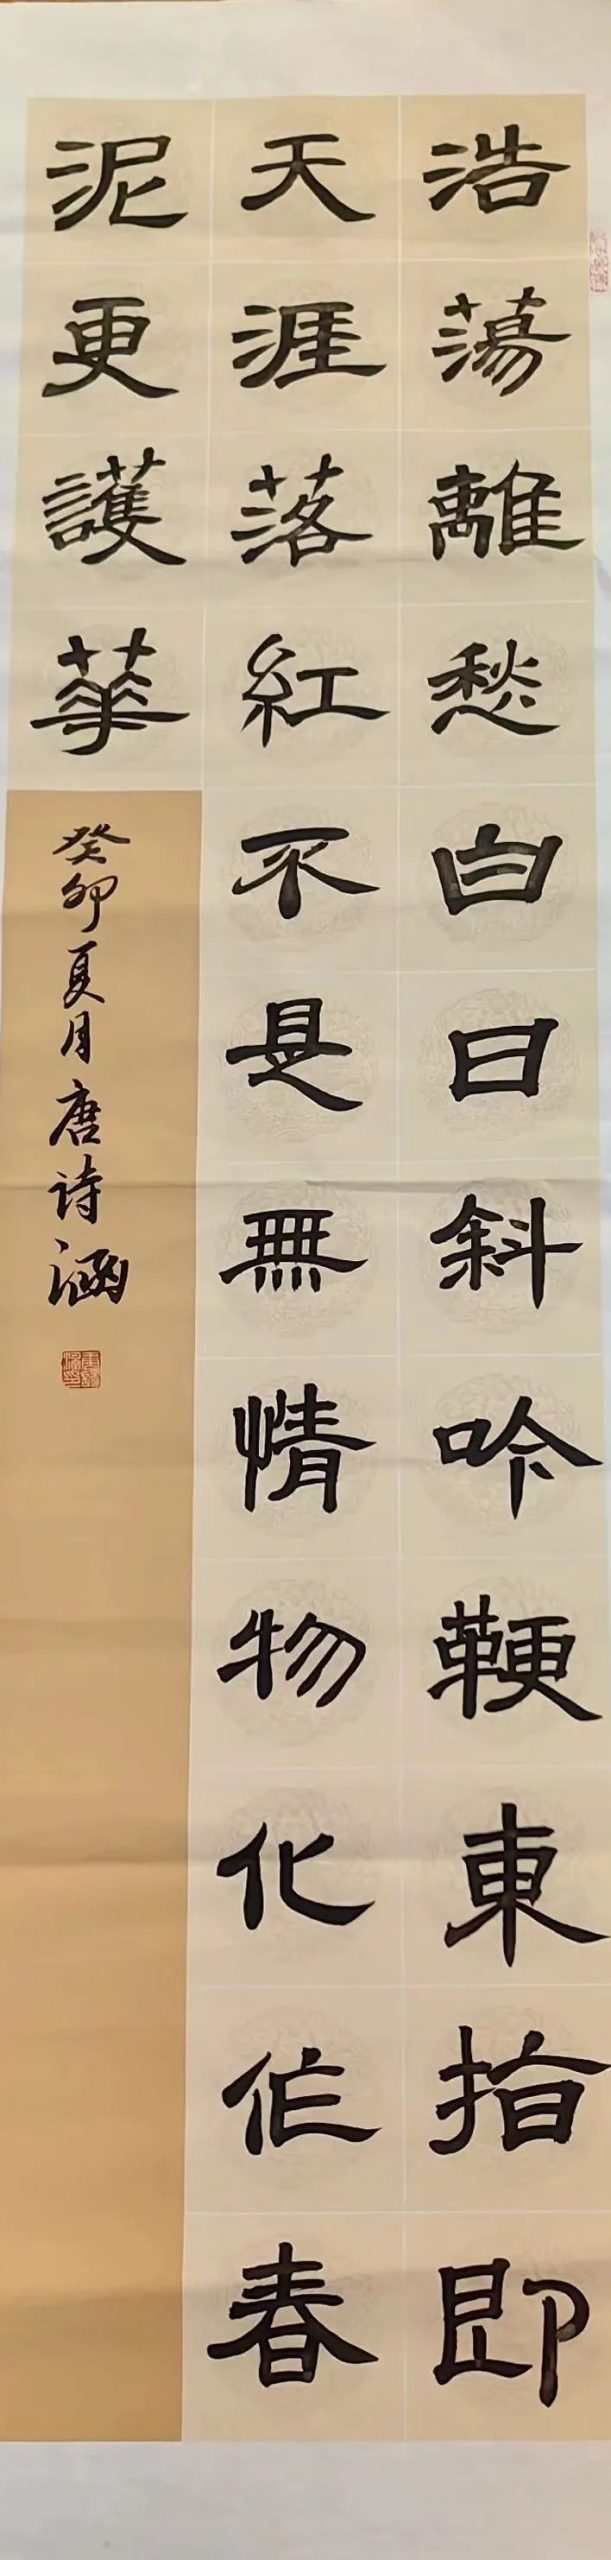 浩蕩離愁白日斜吟鞭東指即
天涯落紅不是無情物化作春
泥更護華
癸卯夏月唐詩涵